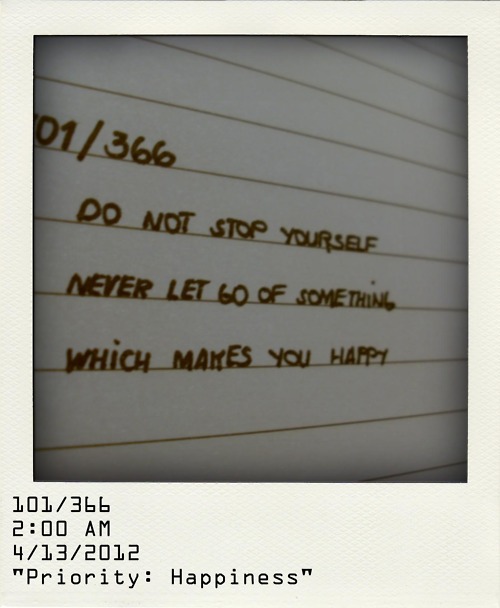 101/366
DO NOT STOP YOURSELF
NEVER LET GO OF SOMETHING
WHICH MAKES YOU HAPPY
101/366
2:00 AM
4/13/2012
"Priority: Happiness"